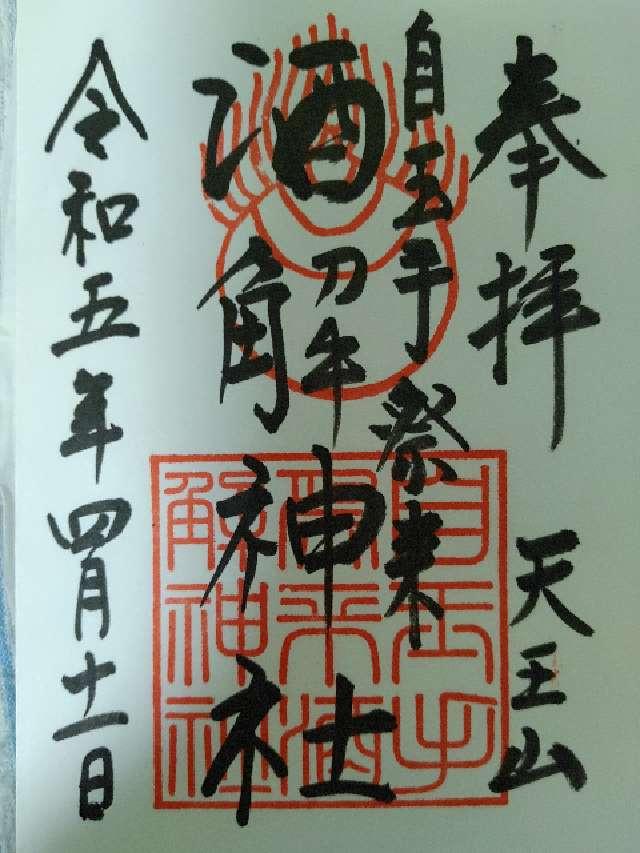 奉拝
天王山
自玉手祭来
酒解神社
令和五年四月十一日
自玉手
祭来酒
解神社